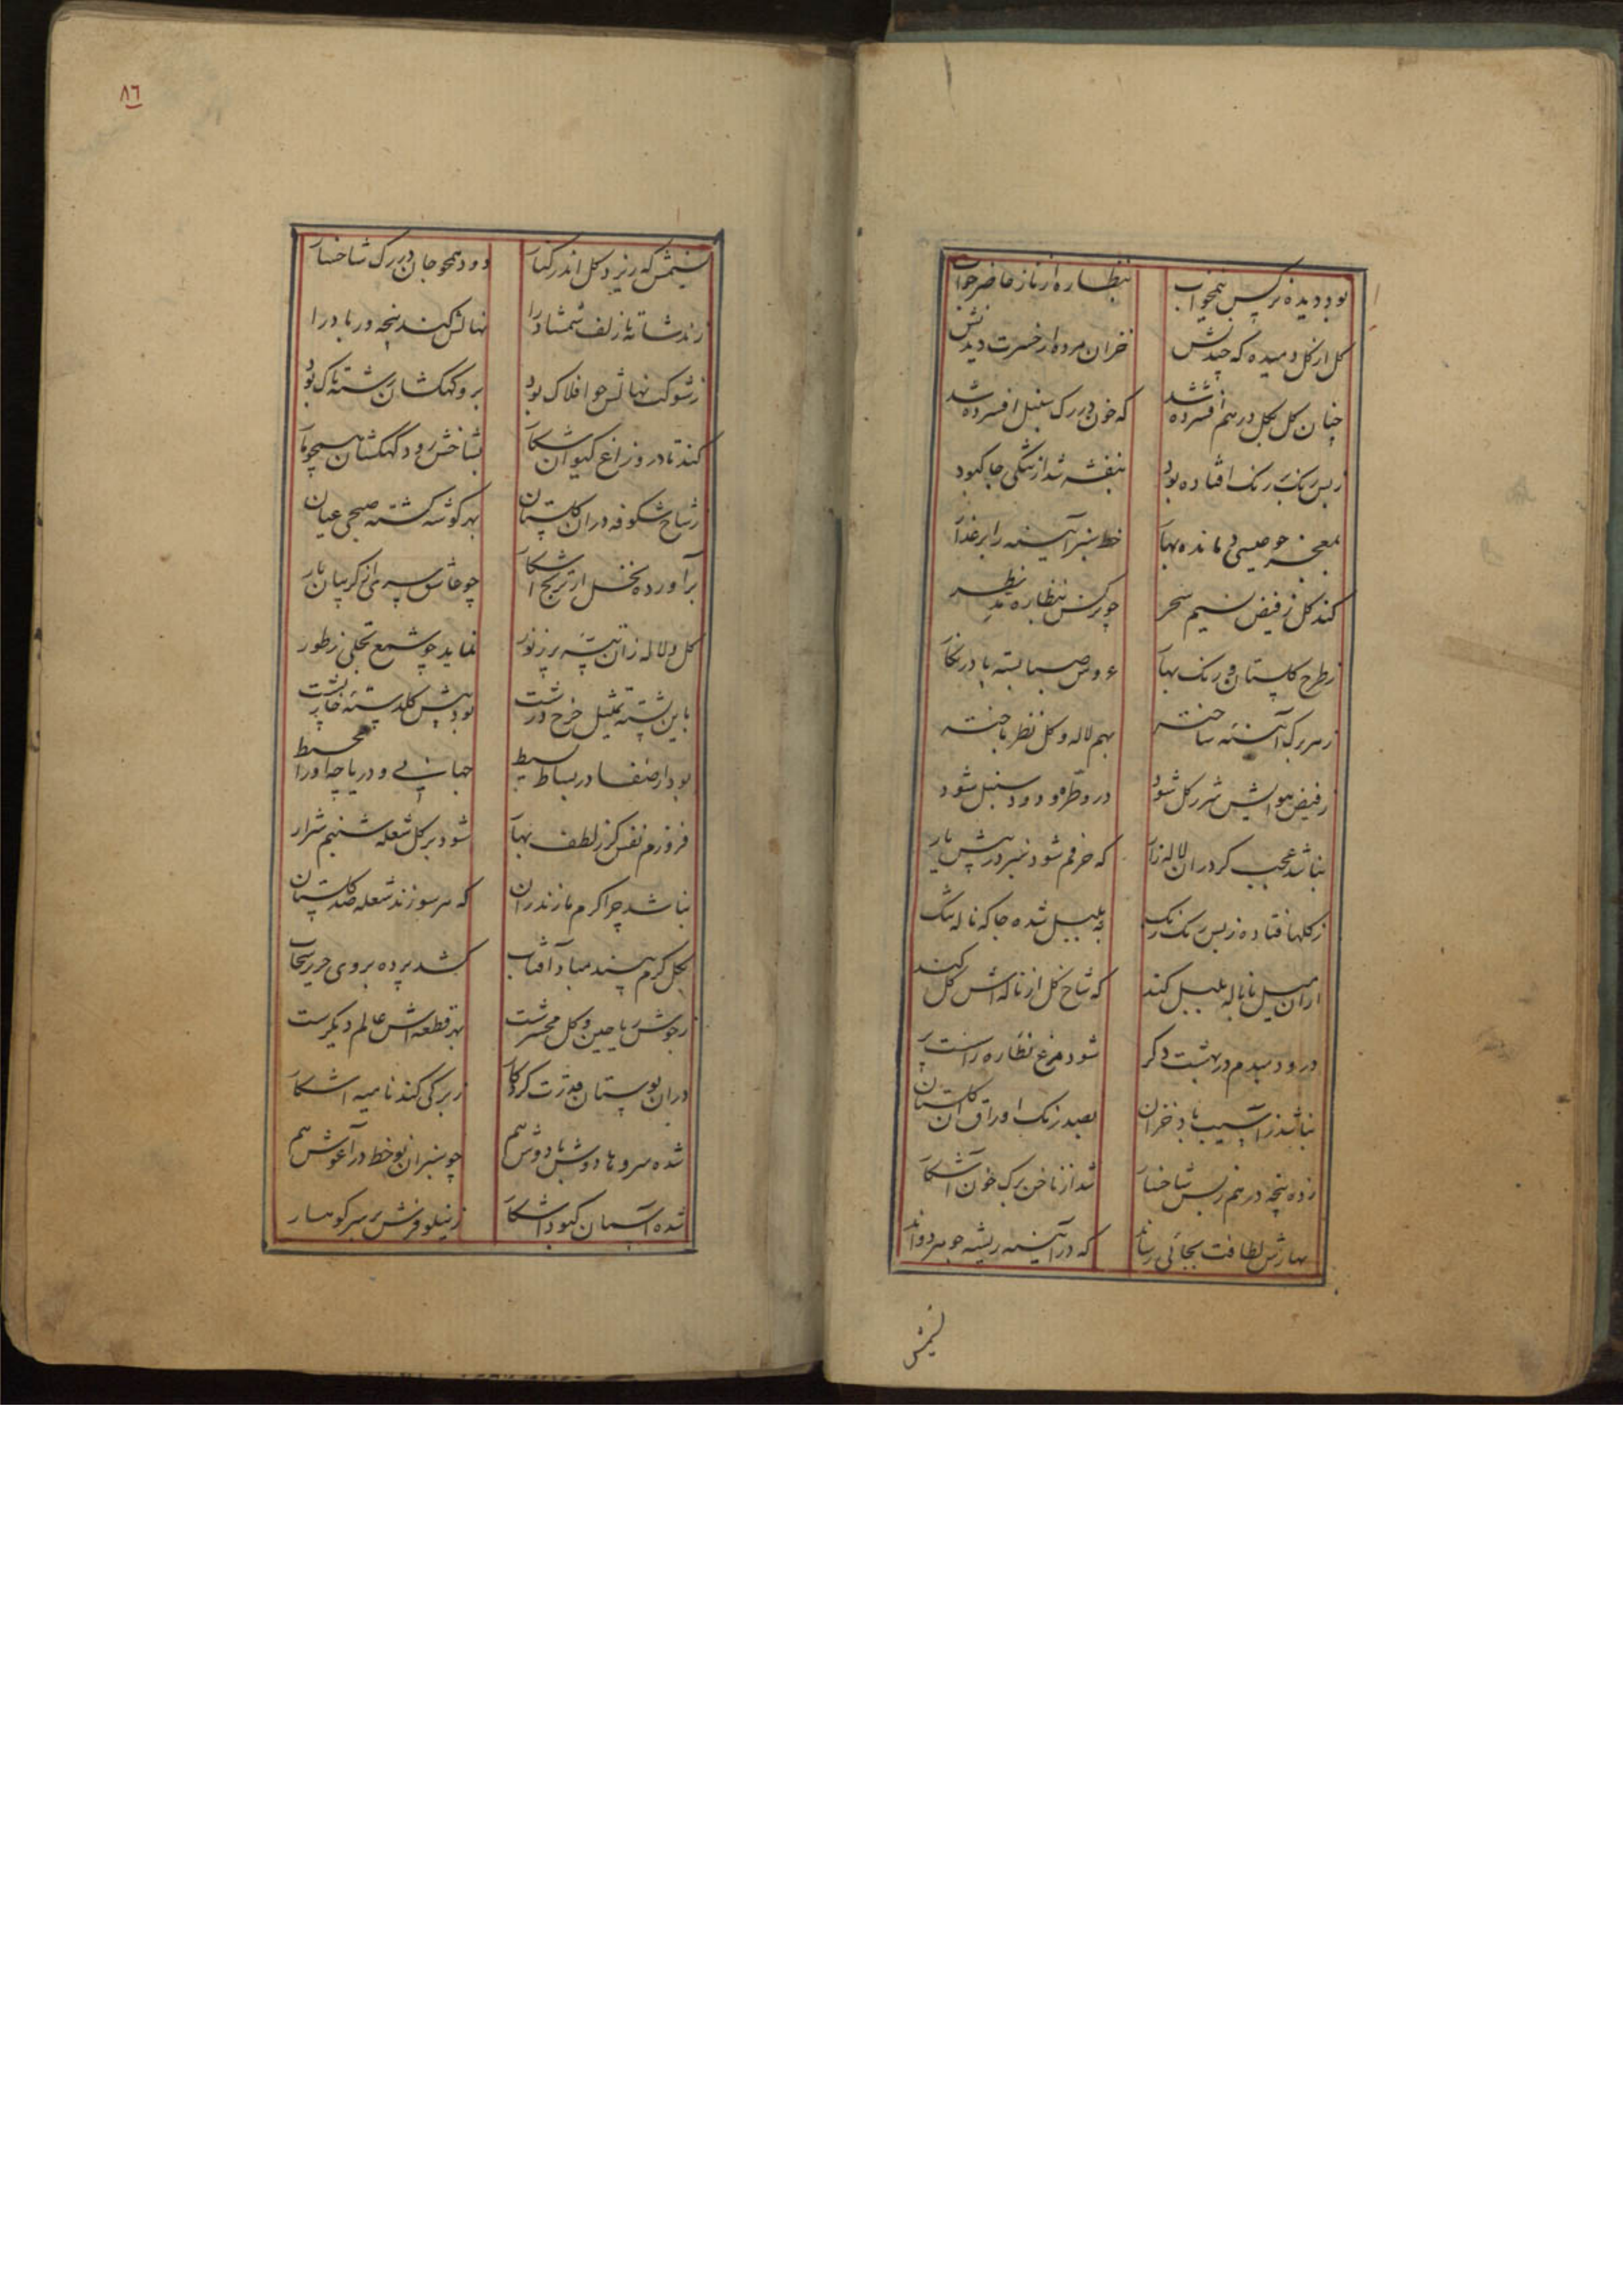 بود دیده نرکس نیمخواب بنظاره از ناز حاضر جواب
کل از کل دمیده که چیدنش خزان مرده از حسرت دیدنش
چنان کل بکل در هم افشرده شد که خون در رک سنبل افسرده شد
ز بس رنک بر رنک افتاده بود بنفشه شد از تنکی جا کبود
بمعجز چو عیسی بهار خط سبز آیینه را بر عذار
کند کل ز فیض نسیم سحر چو نرکس بنظاره نظر
ز طرح کلستان و رنک بهار عروس صبا بسته پا در نکار
ز هر برک آیینه ساخته بهم لاله و کل نظر باخته
ز فیض هوایش شرر کل شود درو طره دود سنبل شود
نباشد عجب کر در ان لاله زار که خرم شود نیزه در پیش یار
ز کلها فتاده ز بس رنک رنک به بلبل شده جا که ناله تنک
از ان میل با ناله بلبل کند که شاخ کل از ناله اش کل کند
درو دمبدم در بهشت دکر شود مرغ نظاره راست پر
نباشد ز آسیب باد خزان بصد رنک اوراق آن کلستان
زده پنجه در هم ز بس شاخسار شد از ناخن برک خون آشکار
بهارش لطافت بجائی رساند که در آیینه ریشه جوهر دواند
نسیمش
٨٦
نسیمش که ریزد کل اندر کنار دود همچو جان در رک شاخسار
زند شانه تا زلف شمشاد را نهالش کند پنجه ور باد را
ز شوکت نهالش چو افلاک بود برو کهکشان رشته تاک بود
کند تا درو زاغ کیوان شکار بشاخش رود کهکشان همچو مار
ز شاخ شکوفه در ان کلستان بهر کوشه کشته صبحی عیان
برآورده نخل از ترنج آشکار چو عاشق سری از کریبان یار
کل و لاله زان پشته پر ز نور نماید چو شمع تجلی ز طور
باین پشته تمثیل چرخ درشت بود پیش کلدسته خارپشت
بود از صفا در بساط بسیط جبابی و دریاچه او را محیط
فروزم نفس کز لطف بهار شود بر کل شعله شبنم شرار
نباشد چرا کرم مازندران که هر سو زند شعله صد کلستان
بکل کرم بیند مبادا آفتاب کشد پرده بر روی حریر سحاب
ز جوش ریاحین و کل محشرست بهر قطعه اش عالم دیکرست
در ان بوستان قدرت کردکار ز برکی کند نامیه آشکار
شده سروها دوش با دوش هم چو سبزان نوخط در آغوش هم
شده آسمان کبود آشکار ز نیلوفرش بر سر کوهسار